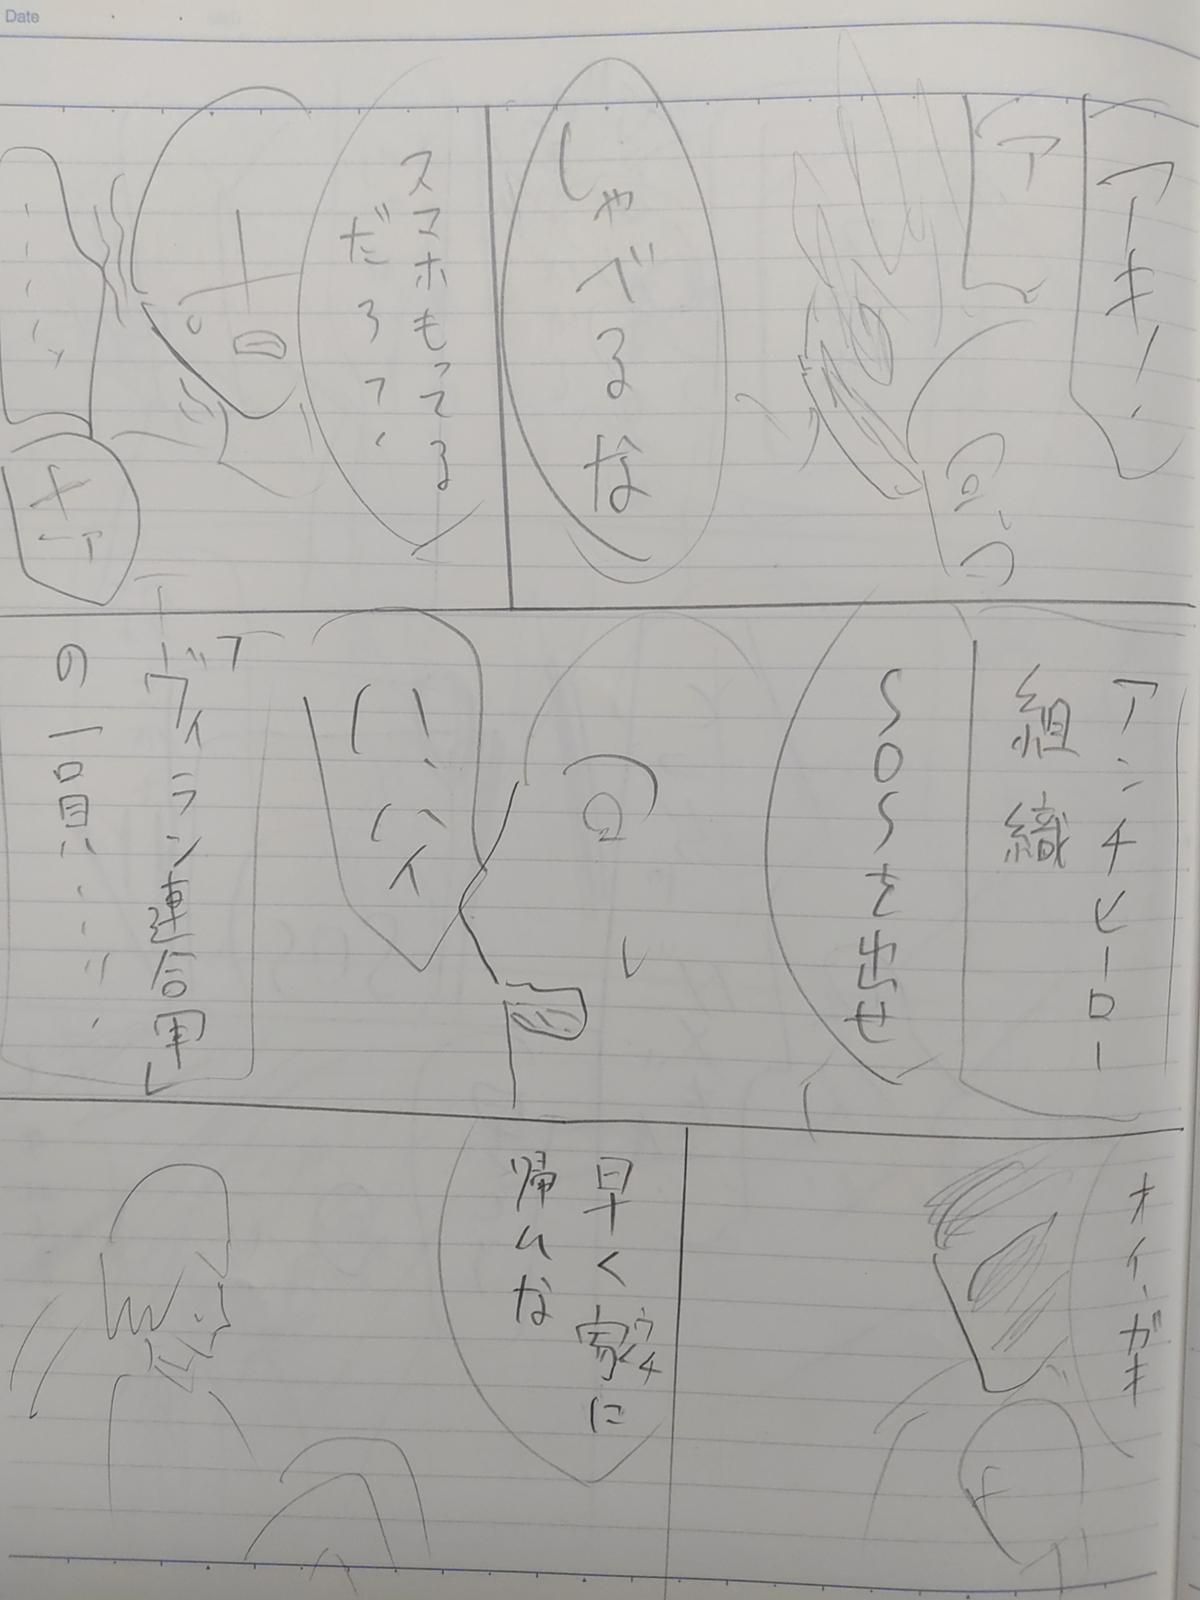 Date
ア
しゃべるな
スマホもってる
だろ?、
アンチヒーロー
組織
SOSを出せ
ハ、ハイ
ヴィラン連合軍」
の一員………
オイ、ガキ
早く家に
ウチ
帰んな